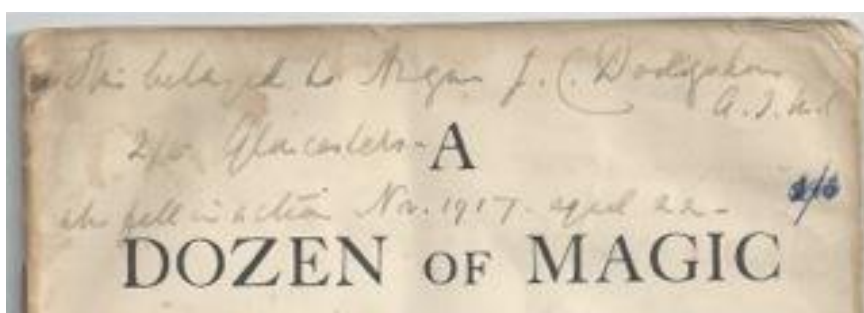 This belonged to Angus J. C. Dodgshon
2/5 Gloucesters -
A
who fell in action Nov. 1917. aged 22 -
DOZEN OF MAGIC